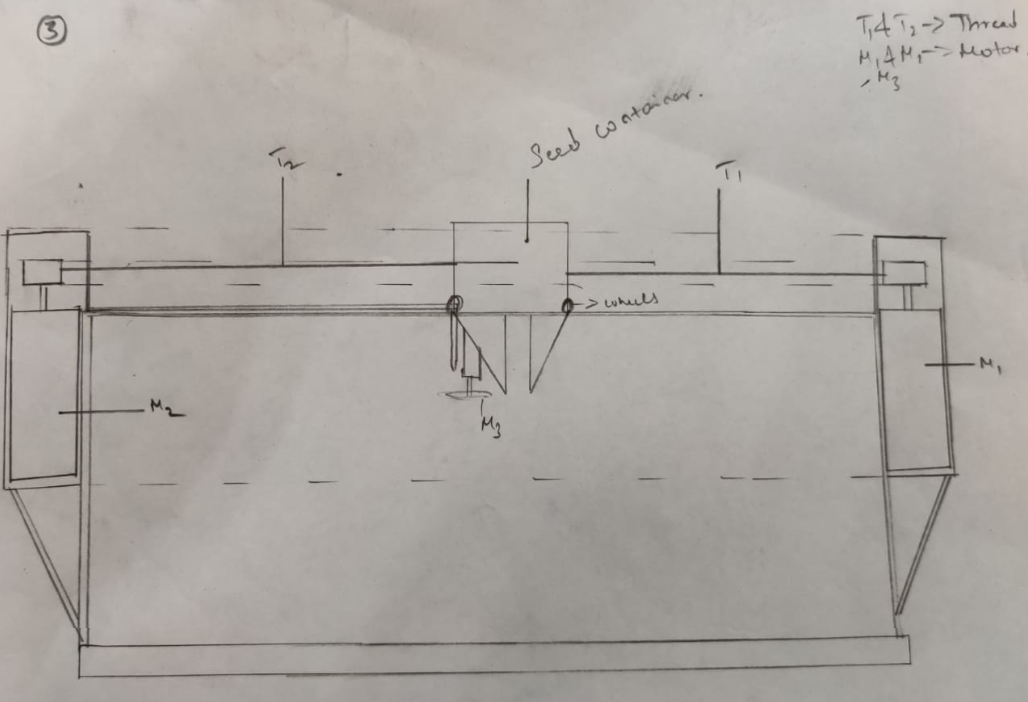 3
T1 & T2 -> Thread
M1 & M1 -> Motor
, M3
Seed container.
T2
T1
-> wheels
M1
M2
M3